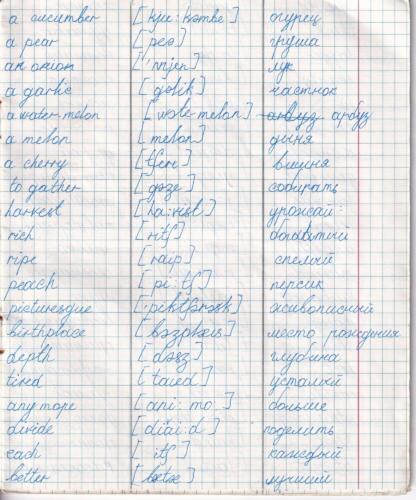 a cucumber [kju:kəmbe] огурец
a pear [peə] груша
an onion ['ʌnjen] лук
a garlic [golik] частнок
a water-melon [wote-melon] арбуз
a melon [melon] дыня
a cherry [tʃeri] вишня
to gather [gəze] собирать
harvest [ha:vist] урожай
rich [ritʃ] богатый
ripe [raip] спелый
peach [pi:tʃ] персик
picturesque живописный
birthplace место рождения
depth глубина
tired [taied] усталый
any more [ani:mo:] больше
divide [diiai:d] поделить
each [itʃ] каждый
better [bətə] лучший